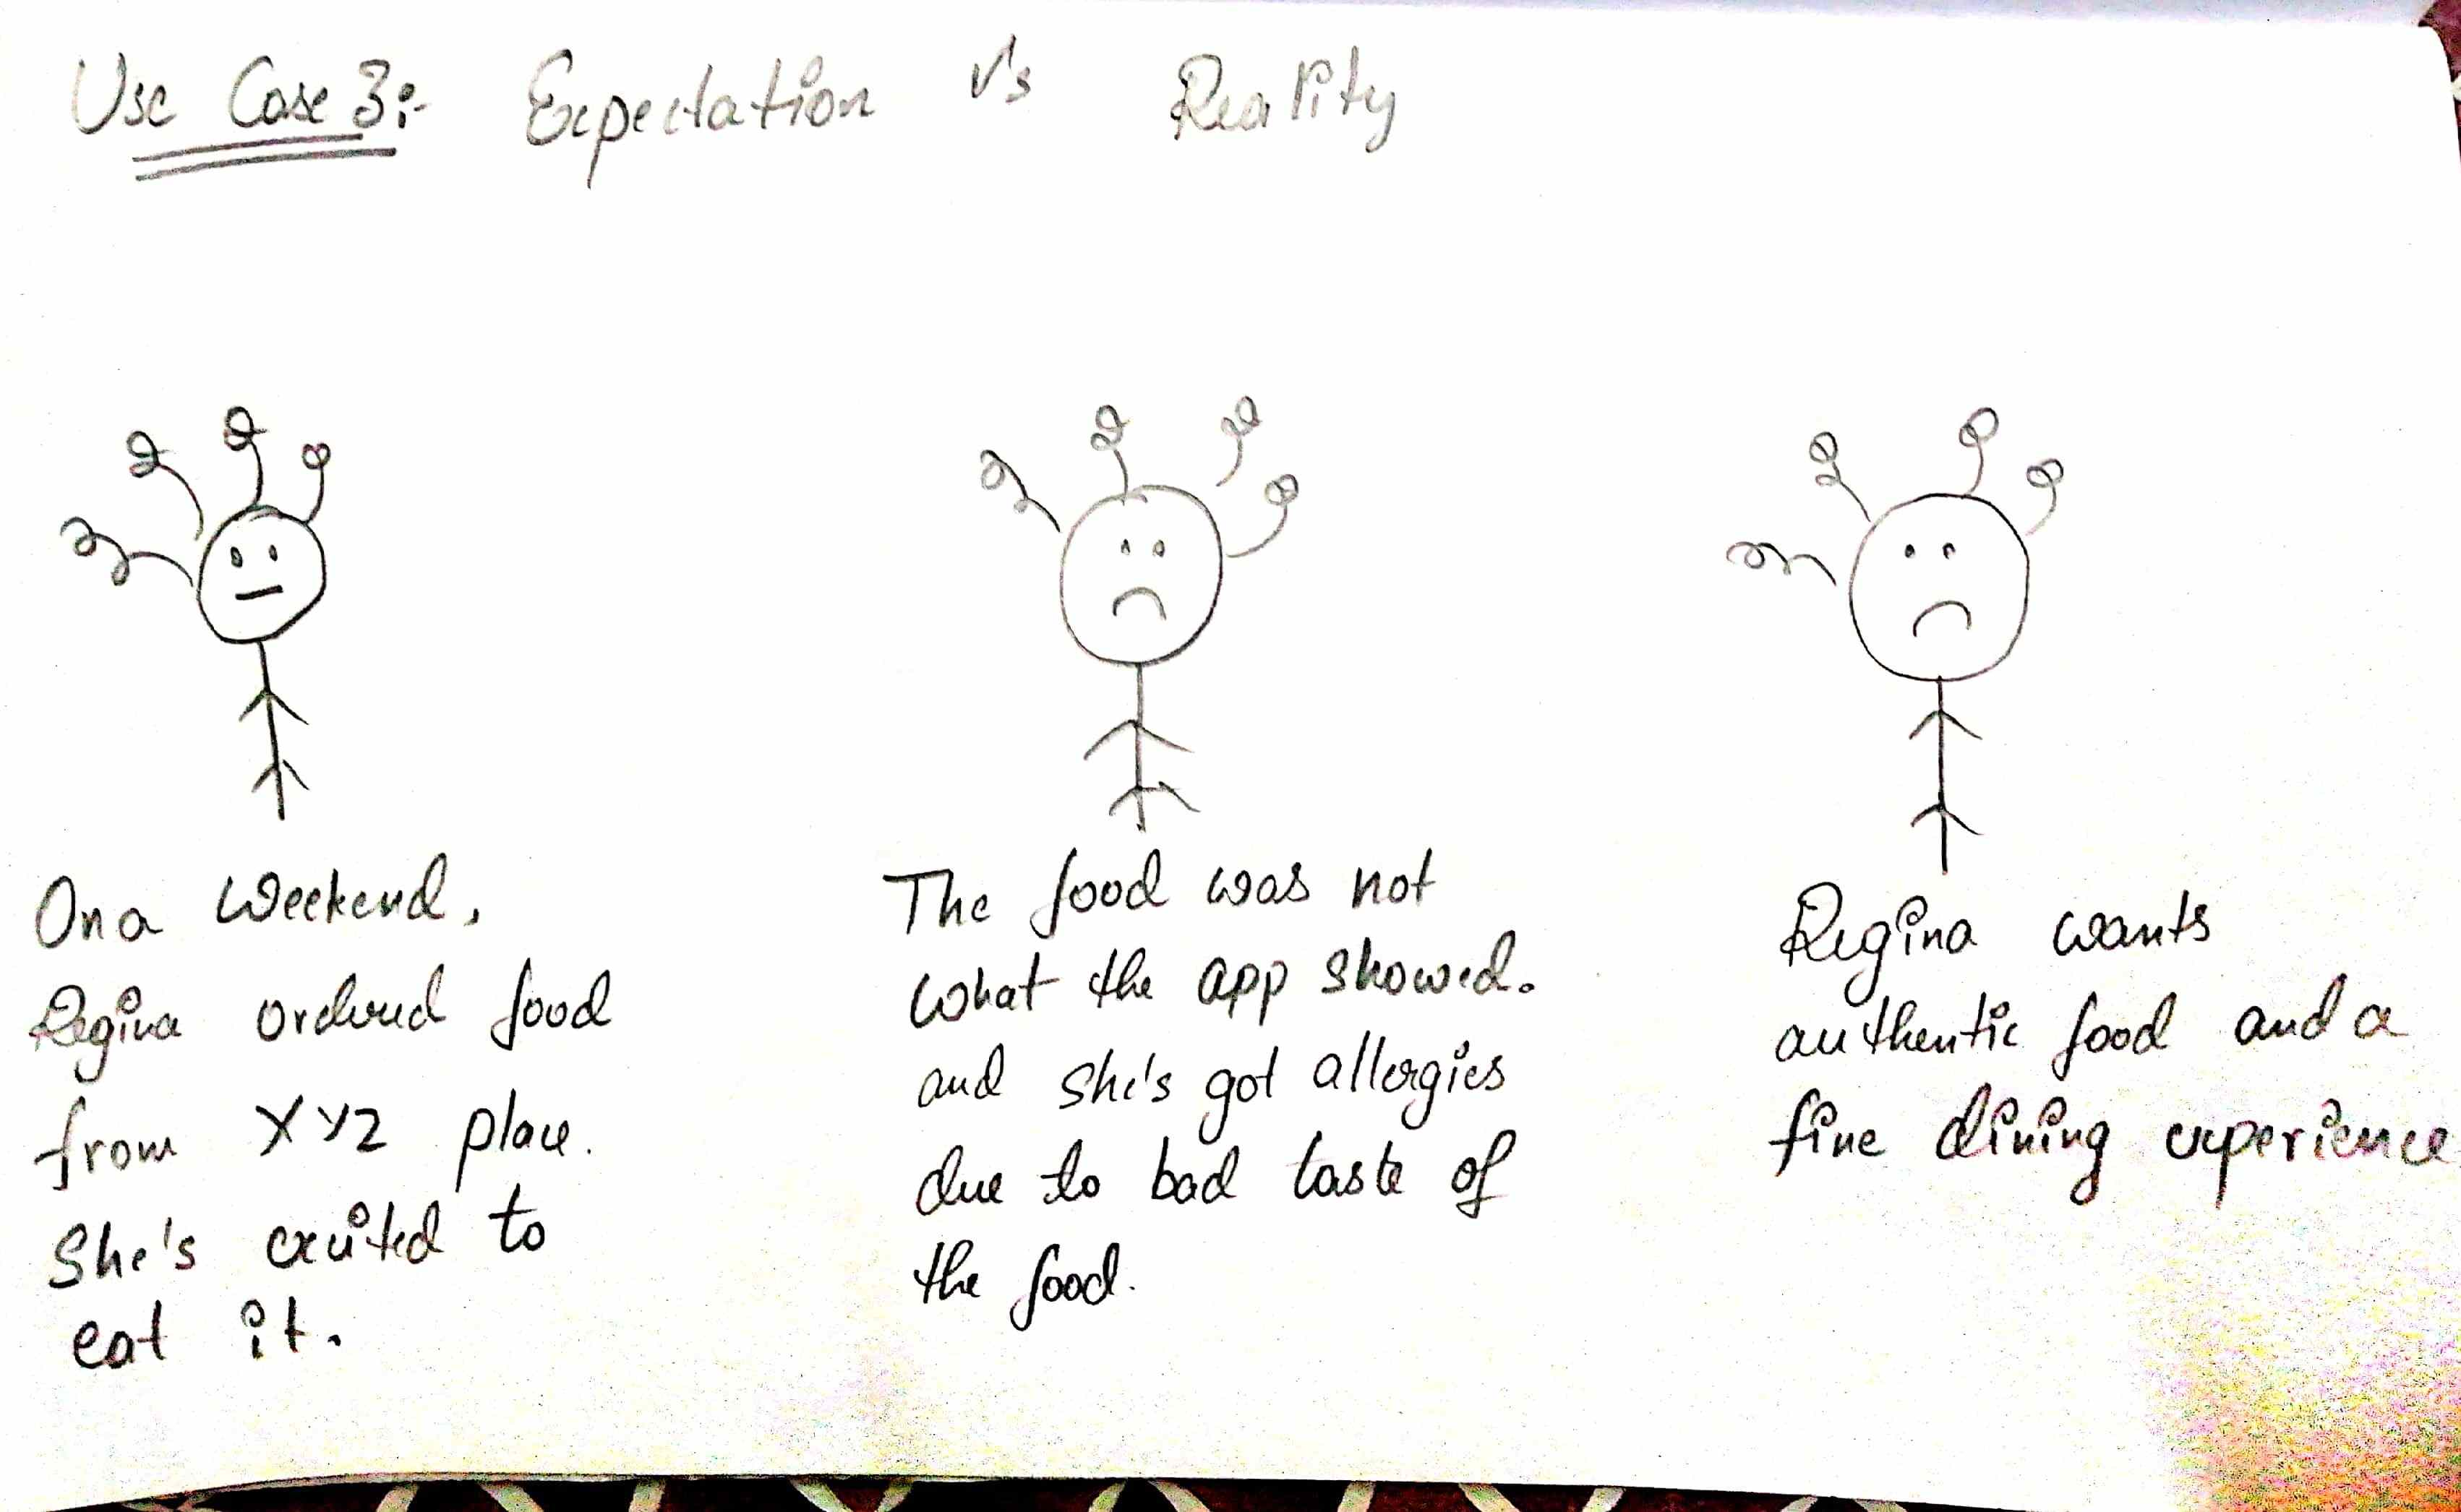 Use Case 3:- Expectation v's Reality
On a weekend,
Regina ordered food
from XYZ place.
She's excited to
eat it.
The food was not
what the app showed.
and she's got allergies
due to bad taste of
the food.
Regina wants
authentic food and a
fine dining experience